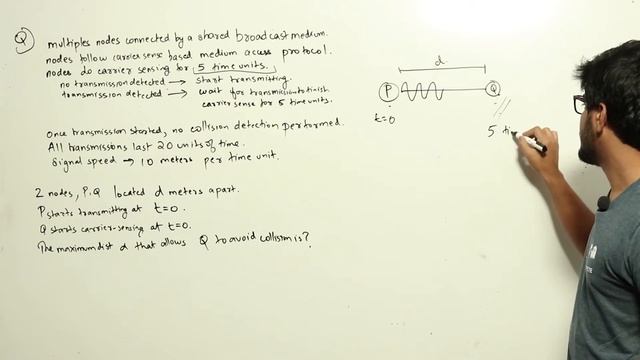 Q
multiples nodes connected by a shared broadcast medium.
nodes follow carrier sense based medium access protocol.
nodes do carrier sensing for 5 time units.
no transmission detected → start transmitting.
transmission detected → wait for transmission to finish
carrier sense for 5 time units.
Once transmission started, no collision detection performed.
All transmissions last 20 units of time.
Signal speed → 10 meters per time unit.
2 nodes, P, Q located d meters apart.
P starts transmitting at t=0.
Q starts carrier-sensing at t=0.
The maximum dist d that allows Q to avoid collism is?
d
P
Q
t=0
5 ti